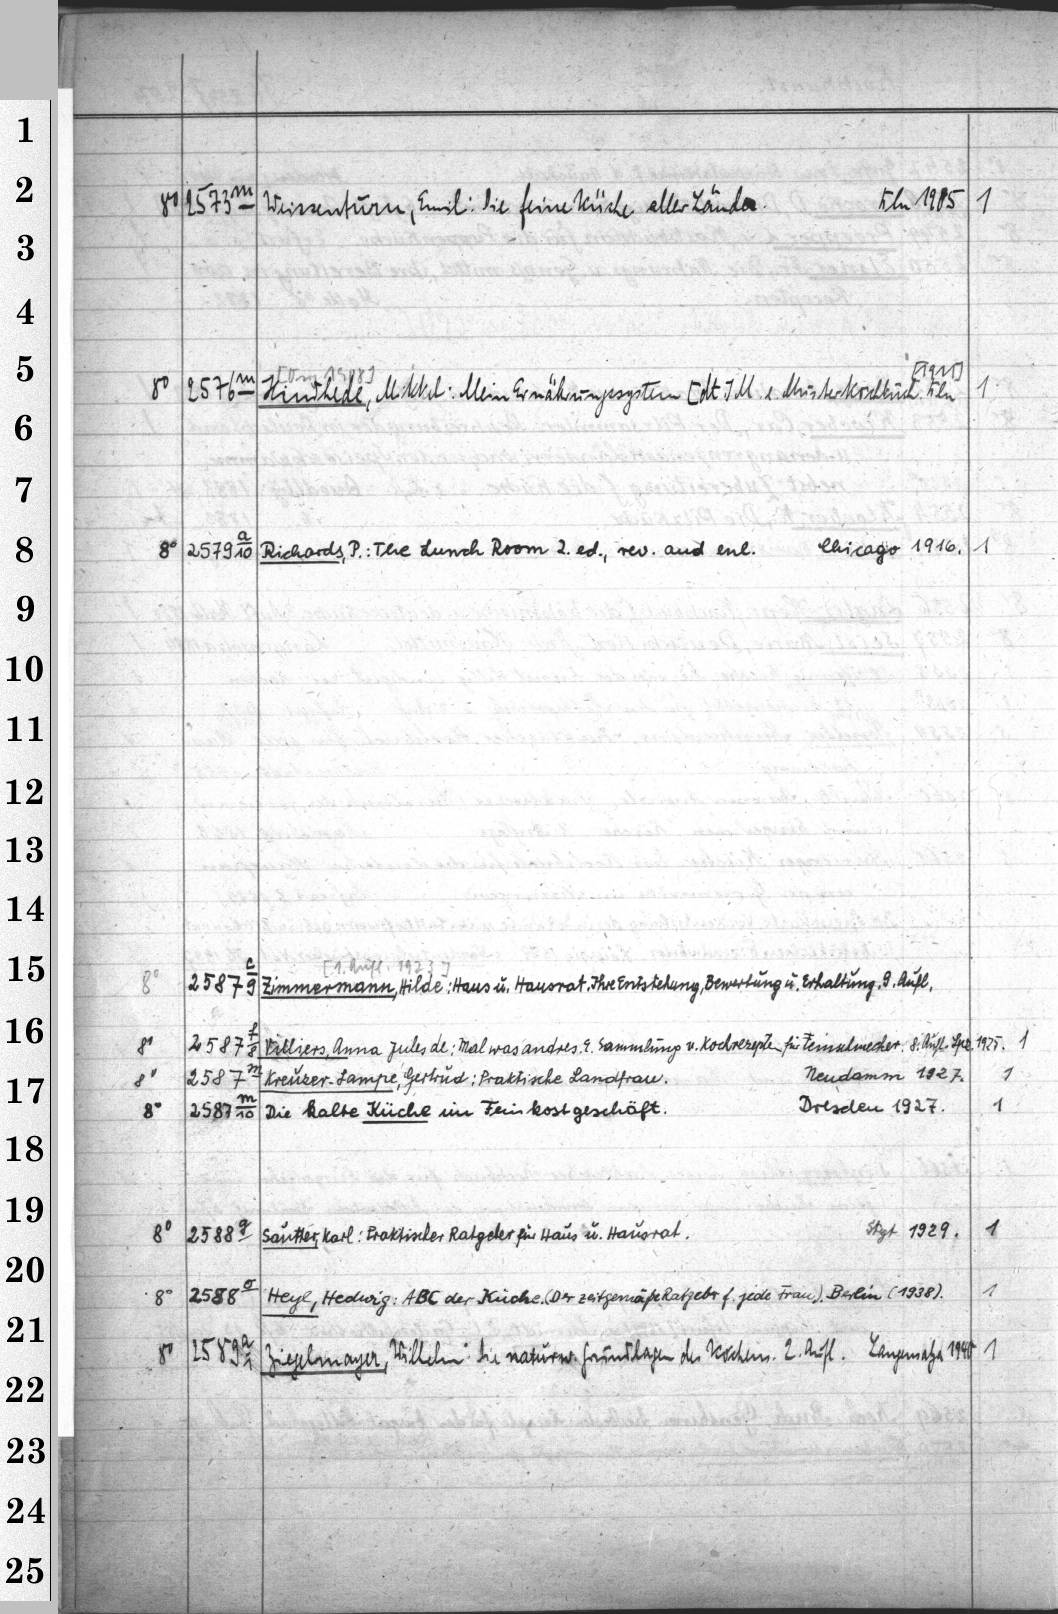 1
2
8° 2573m Weissenturn, Emil: Die feine Küche aller Länder. Bln 1905 1
3
4
5
[Om 1908] [1911]
8° 2576m Hindhede, Mikkel: Mein Ernährungssystem [dt.] M. e. Musterkochbuch. Bln 1
6
7
8
8° 2579a/10 Richards, P.: The Lunch Room 2. ed., rev. and enl. Chicago 1916. 1
9
10
11
12
13
14
15
[1. Aufl. 1923]
8° 2587c/9 Zimmermann, Hilde: Haus u. Hausrat. Ihre Entstehung, Bewertung u. Erhaltung. 9. Aufl.
16
8° 2587f/8 Villiers, Anna Jules de: Mal was andres. E. Sammlung v. Kochrezepten für Feinschmecker. 8. Aufl. Lpz. 1925. 1
17
8° 2587m Kreuzer-Lampe, Gertrud: Praktische Landfrau. Neudamm 1927. 1
8° 2587m/10 Die kalte Küche im Feinkostgeschäft. Dresden 1927. 1
18
19
8° 2588g Sautter, Karl: Praktischer Ratgeber für Haus u. Hausrat. Stgt 1929. 1
20
8° 2588o Heyl, Hedwig: ABC der Küche. (Der zeitgemäße Ratgebr f. jede Frau). Berlin (1938). 1
21
8° 2589a/1 Ziegelmayer, Wilhelm: Die naturw. Grundlagen des Kochens. 2. Aufl. Langensalza 1940 1
22
23
24
25